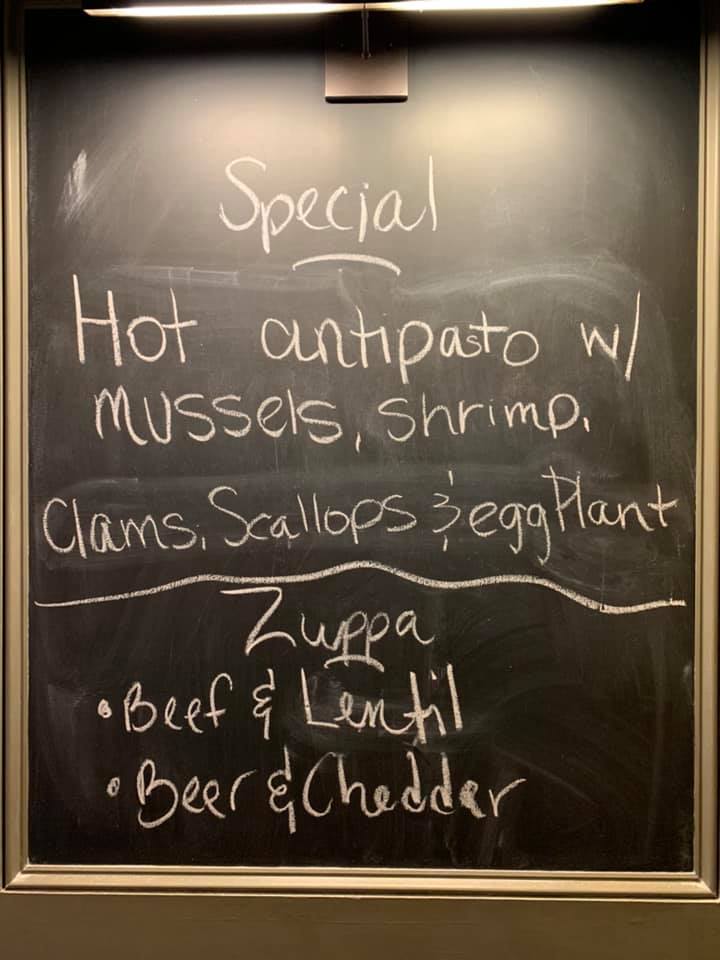 Special
Hot antipasto w/
mussels, shrimp,
Clams, Scallops & eggPlant
Zuppa
• Beef & Lentil
• Beer & Cheddar